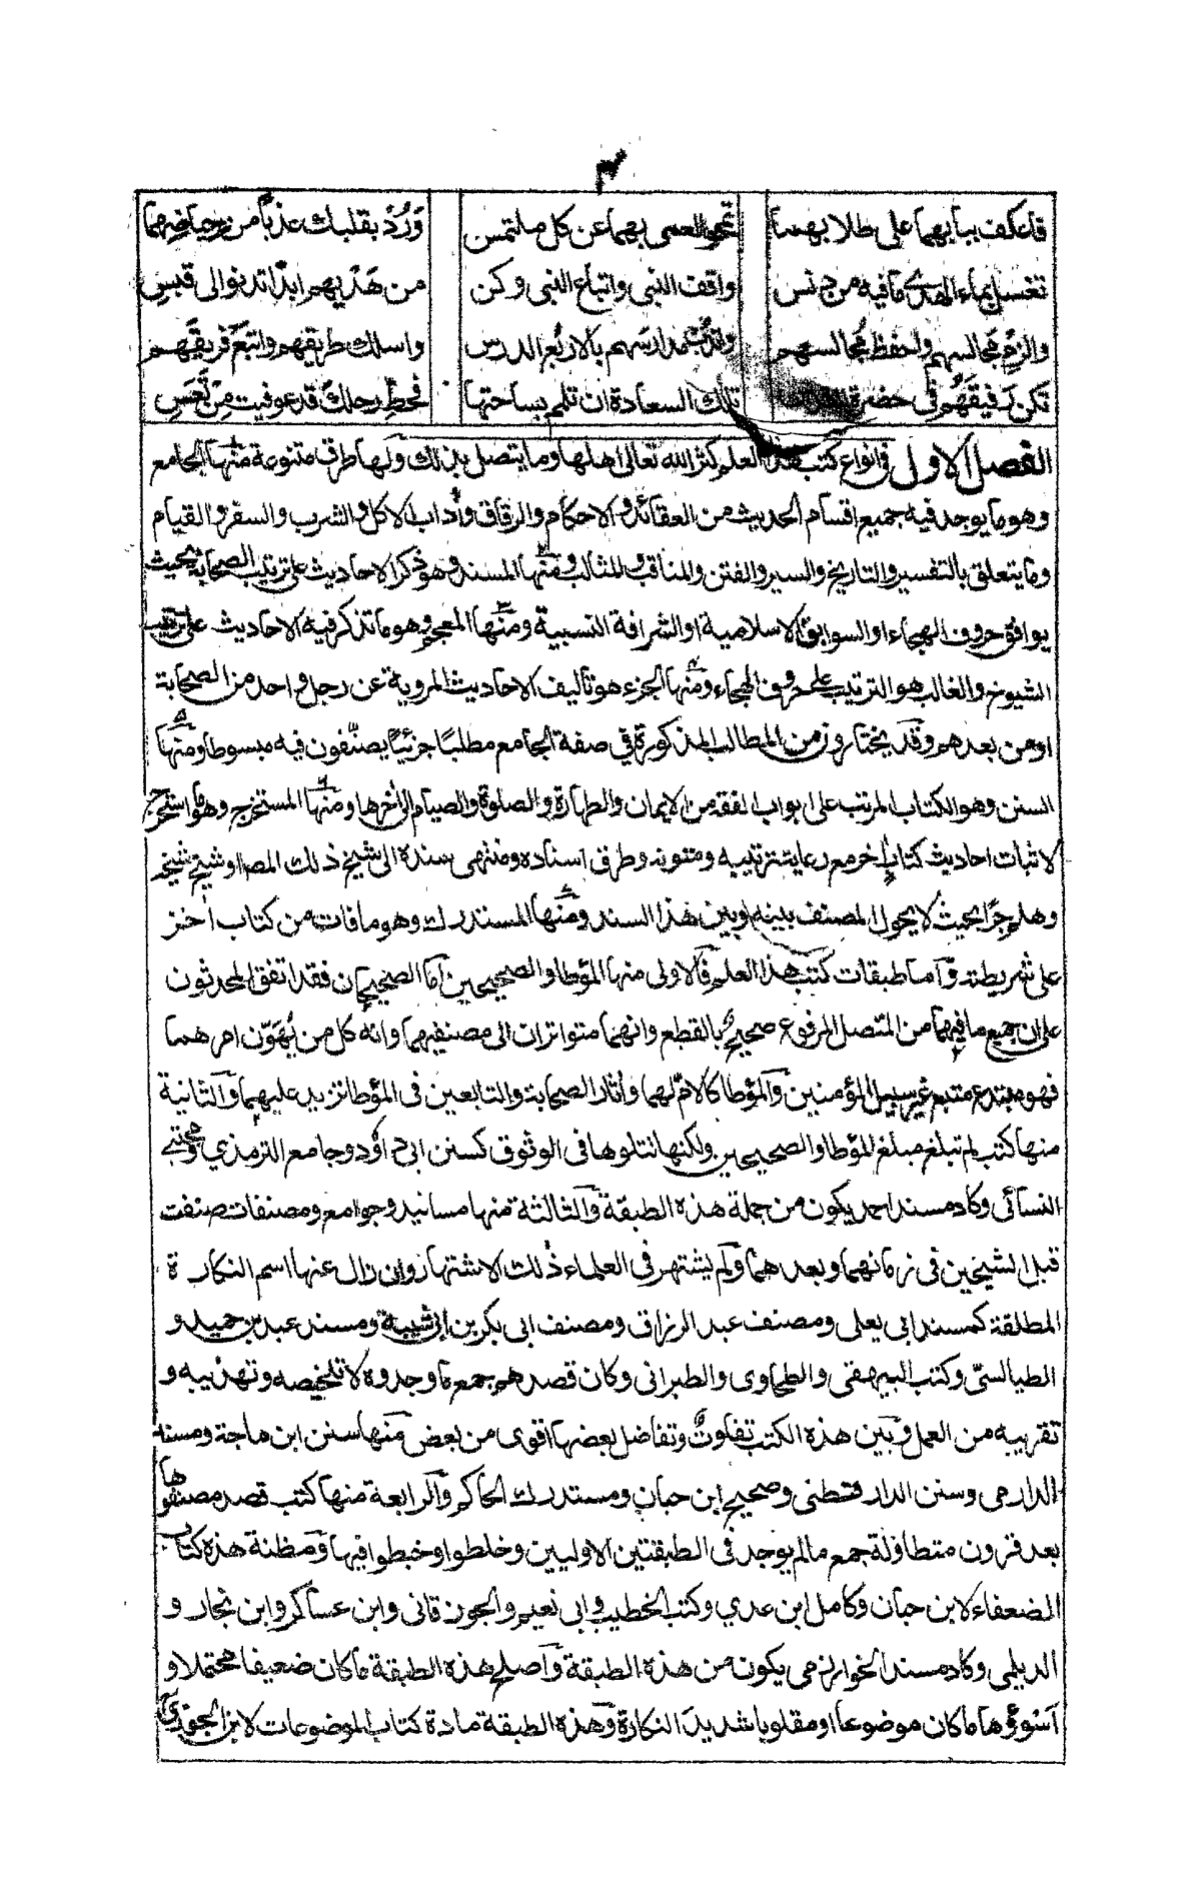 فاعكف ببابهما على طلابهما تمحو العمى بهما عن كل ملتمس وَرُدْ بقلبك عذباً من حياضهما
تغسل بماء الهدى ما فيه من دنس واقف النبى واتباع النبى وكن من هَدْيهم ابدًا تدنو الى قبس
والزم مجالسهم واحفظ مجالسهم واندُب مدارسهم بالاربُع الدرس واسلك طريقهم واتبع فريقهم
تكن رفيقهم فى حضرة تلك السعادة ان تلمم بساحتها فحطّ رحلك قد عوفيت مِنْ تَعَسِ
الفصل الاول فى انواع كتب هذا العلم كثر الله تعالى اهلها وما يتصل بذلك ولها طرق متنوعة منها الجامع
وهو ما يوجد فيه جميع اقسام الحديث من العقائد والاحكام والرقاق وأداب الاكل والشرب والسفر والقيام
وما يتعلق بالتفسير والتاريخ والسير والفتن والمناقب والمثالب ومنها المسند وهو ذكر الاحاديث على ترتيب الصحابة بحيث
يوافق حروف الهجاء او السوابق الاسلامية او الشرافة النسبية ومنها المعجم وهو ما تذكر فيه الاحاديث على ترتيب
الشيوخ والغالب هو الترتيب على حروف الهجاء ومنها الجزء هو تاليف الاحاديث المروية عن رجل واحد من الصحابة
او من بعدهم وقد يختارون من المطالب المذكورة فى صفة الجامع مطلبًا جزئيًا يصنّفون فيه مبسوطا ومنها
السنن وهو الكتاب المرتب على ابواب الفقه من الايمان والطهارة والصلوة والصيام الى أخرها ومنها المستخرج وهو ما استخرج
لاثبات احاديث كتاب أخر مع رعاية ترتيبه ومتونه وطرق اسناده ومنتهى سنده الى شيخ ذلك المصنف او شيخ شيخه
وهلم جرًا بحيث لا يحول المصنف بينه وبين هذا السند ومنها المستدرك وهو ما فات من كتاب أخر
على شريطته وأما طبقات كتب هذا العلم فالاولى منها المؤطا والصحيحين أما الصحيحان فقد اتفق المحدثون
على ان جميع ما فيهما من المتصل المرفوع صحيحٌ بالقطع وانهما متواتران الى مصنفيهما وانه كل من يُهَوّن امرهما
فهو مبتدع متبع غير سبيل المؤمنين والمؤطا كالامّ لهما وأثار الصحابة والتابعين فى المؤطا تزيد عليهما والثانية
منها كتب لم تبلغ مبلغ المؤطا والصحيحين ولكنها تتلوها فى الوثوق كسنن ابى داؤد وجامع الترمذي ومجتبى
النسائى وكاد مسند احمد يكون من جملة هذه الطبقة والثالثة منها مسانيد وجوامع ومصنفات صنفت
قبل الشيخين فى زمانهما وبعدهما ولم يشتهر فى العلماء ذلك الاشتهار وان زال عنها اسم النكارة
المطلقة كمسند ابى يعلى ومصنف عبد الرزاق ومصنف ابى بكر بن ابى شيبة ومسند عبد بن حميد و
الطيالسىّ وكتب البيهقى والطحاوى والطبرانى وكان قصدهم جمع ما وجدوه لا تلخيصه وتهذيبه و
تقريبه من العمل وبين هذه الكتب تفاوتٌ وتفاضل بعضها اقوى من بعض منها سنن ابن ماجة ومسند
الدارمى وسنن الدارقطنى وصحيح ابن حبان ومستدرك الحاكم والرابعة منها كتب قصد مصنفوها
بعد قرون متطاولة جمع ما لم يوجد فى الطبقتين الاوليين وخلطوا وخبطوا فيها ومظنة هذه كتاب
الضعفاء لابن حبان وكامل ابن عدي وكتب الخطيب وابى نعيم والجوزقانى وابن عساكر وابن نجار و
الديلمى وكاد مسند الخوارزمى يكون من هذه الطبقة وأصلح هذه الطبقة ما كان ضعيفا محتملا و
أسوؤها ما كان موضوعا او مقلوبا شديد النكارة وهذه الطبقة مادة كتاب الموضوعات لابن الجوزى